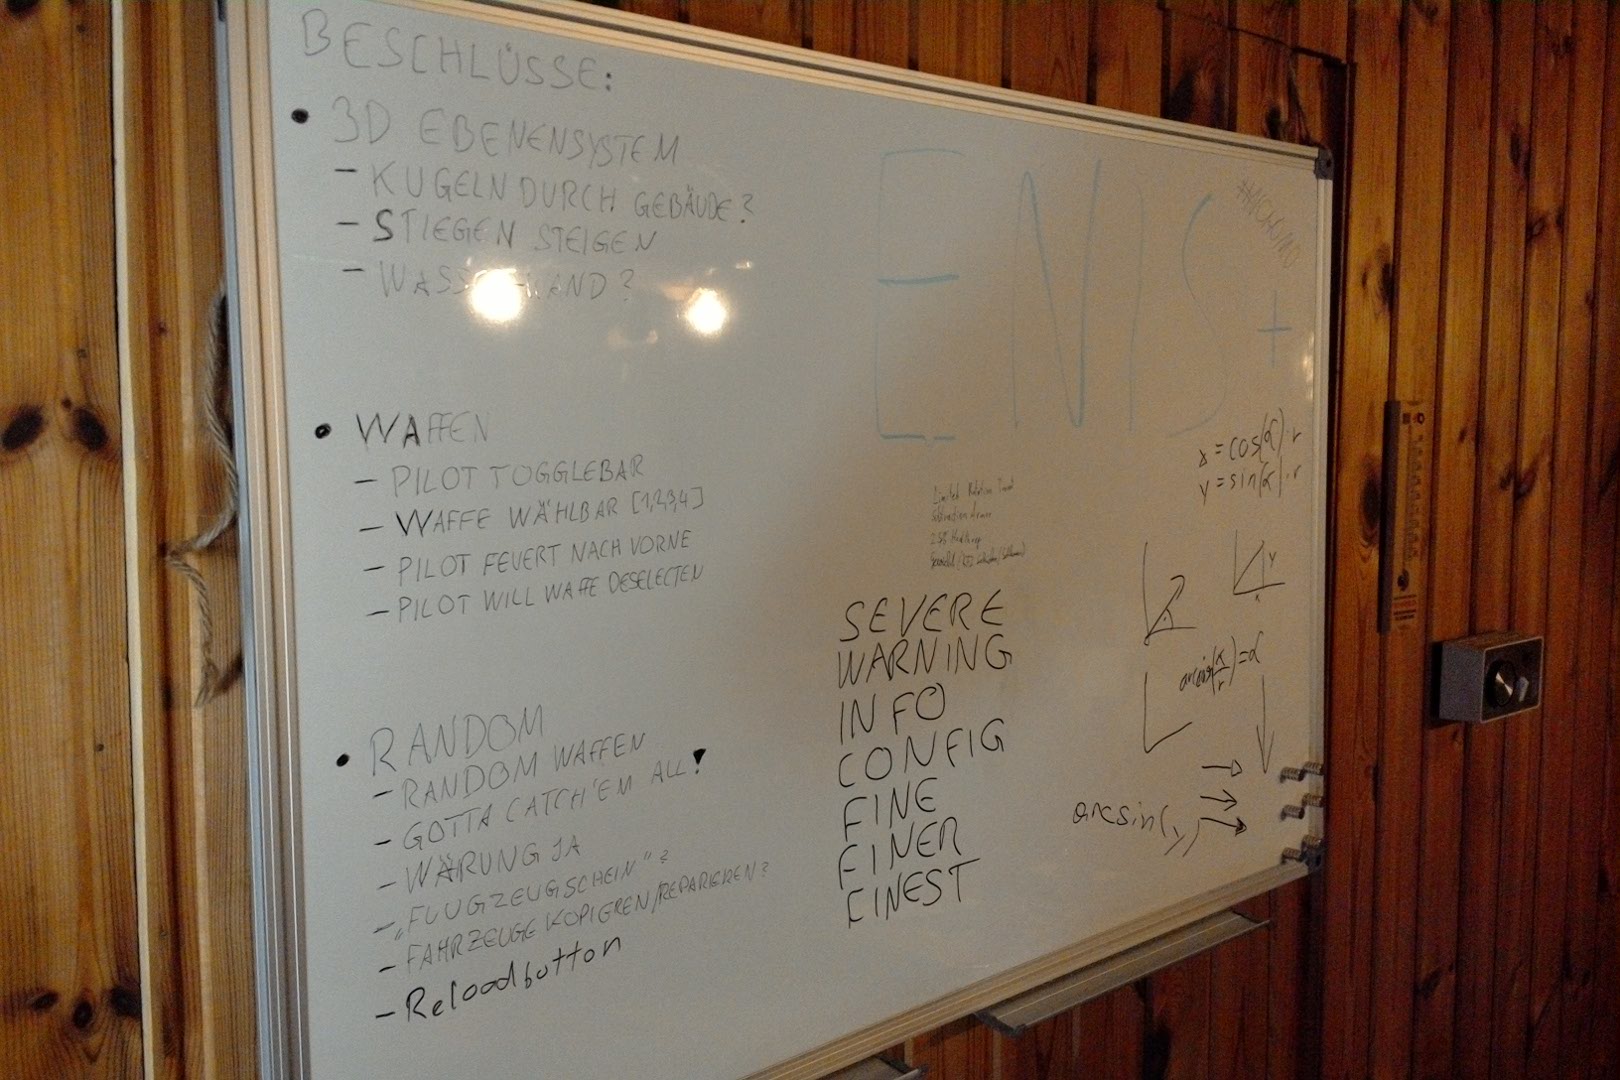 BESCHLÜSSE:
• 3D EBENENSYSTEM
- KUGELN DURCH GEBÄUDE?
- STIEGEN STEIGEN
- WASSER/LAND?
• WAFFEN
- PILOT TOGGLEBAR
- WAFFE WÄHLBAR [1,2,3,4]
- PILOT FEUERT NACH VORNE
- PILOT WILL WAFFE DESELECTEN
• RANDOM
- RANDOM WAFFEN
- GOTTA CATCH'EM ALL!
- WÄRUNG JA
- „FLUGZEUGSCHEIN"?
- FAHRZEUGE KOPIEREN/REPARIEREN?
- Reloadbutton
ENIS+
x = cos(α)·r
y = sin(α)·r
Limited Rotation
SEVERE
WARNING
INFO
CONFIG
FINE
FINER
FINEST
y
x
=α
arcsin(y)